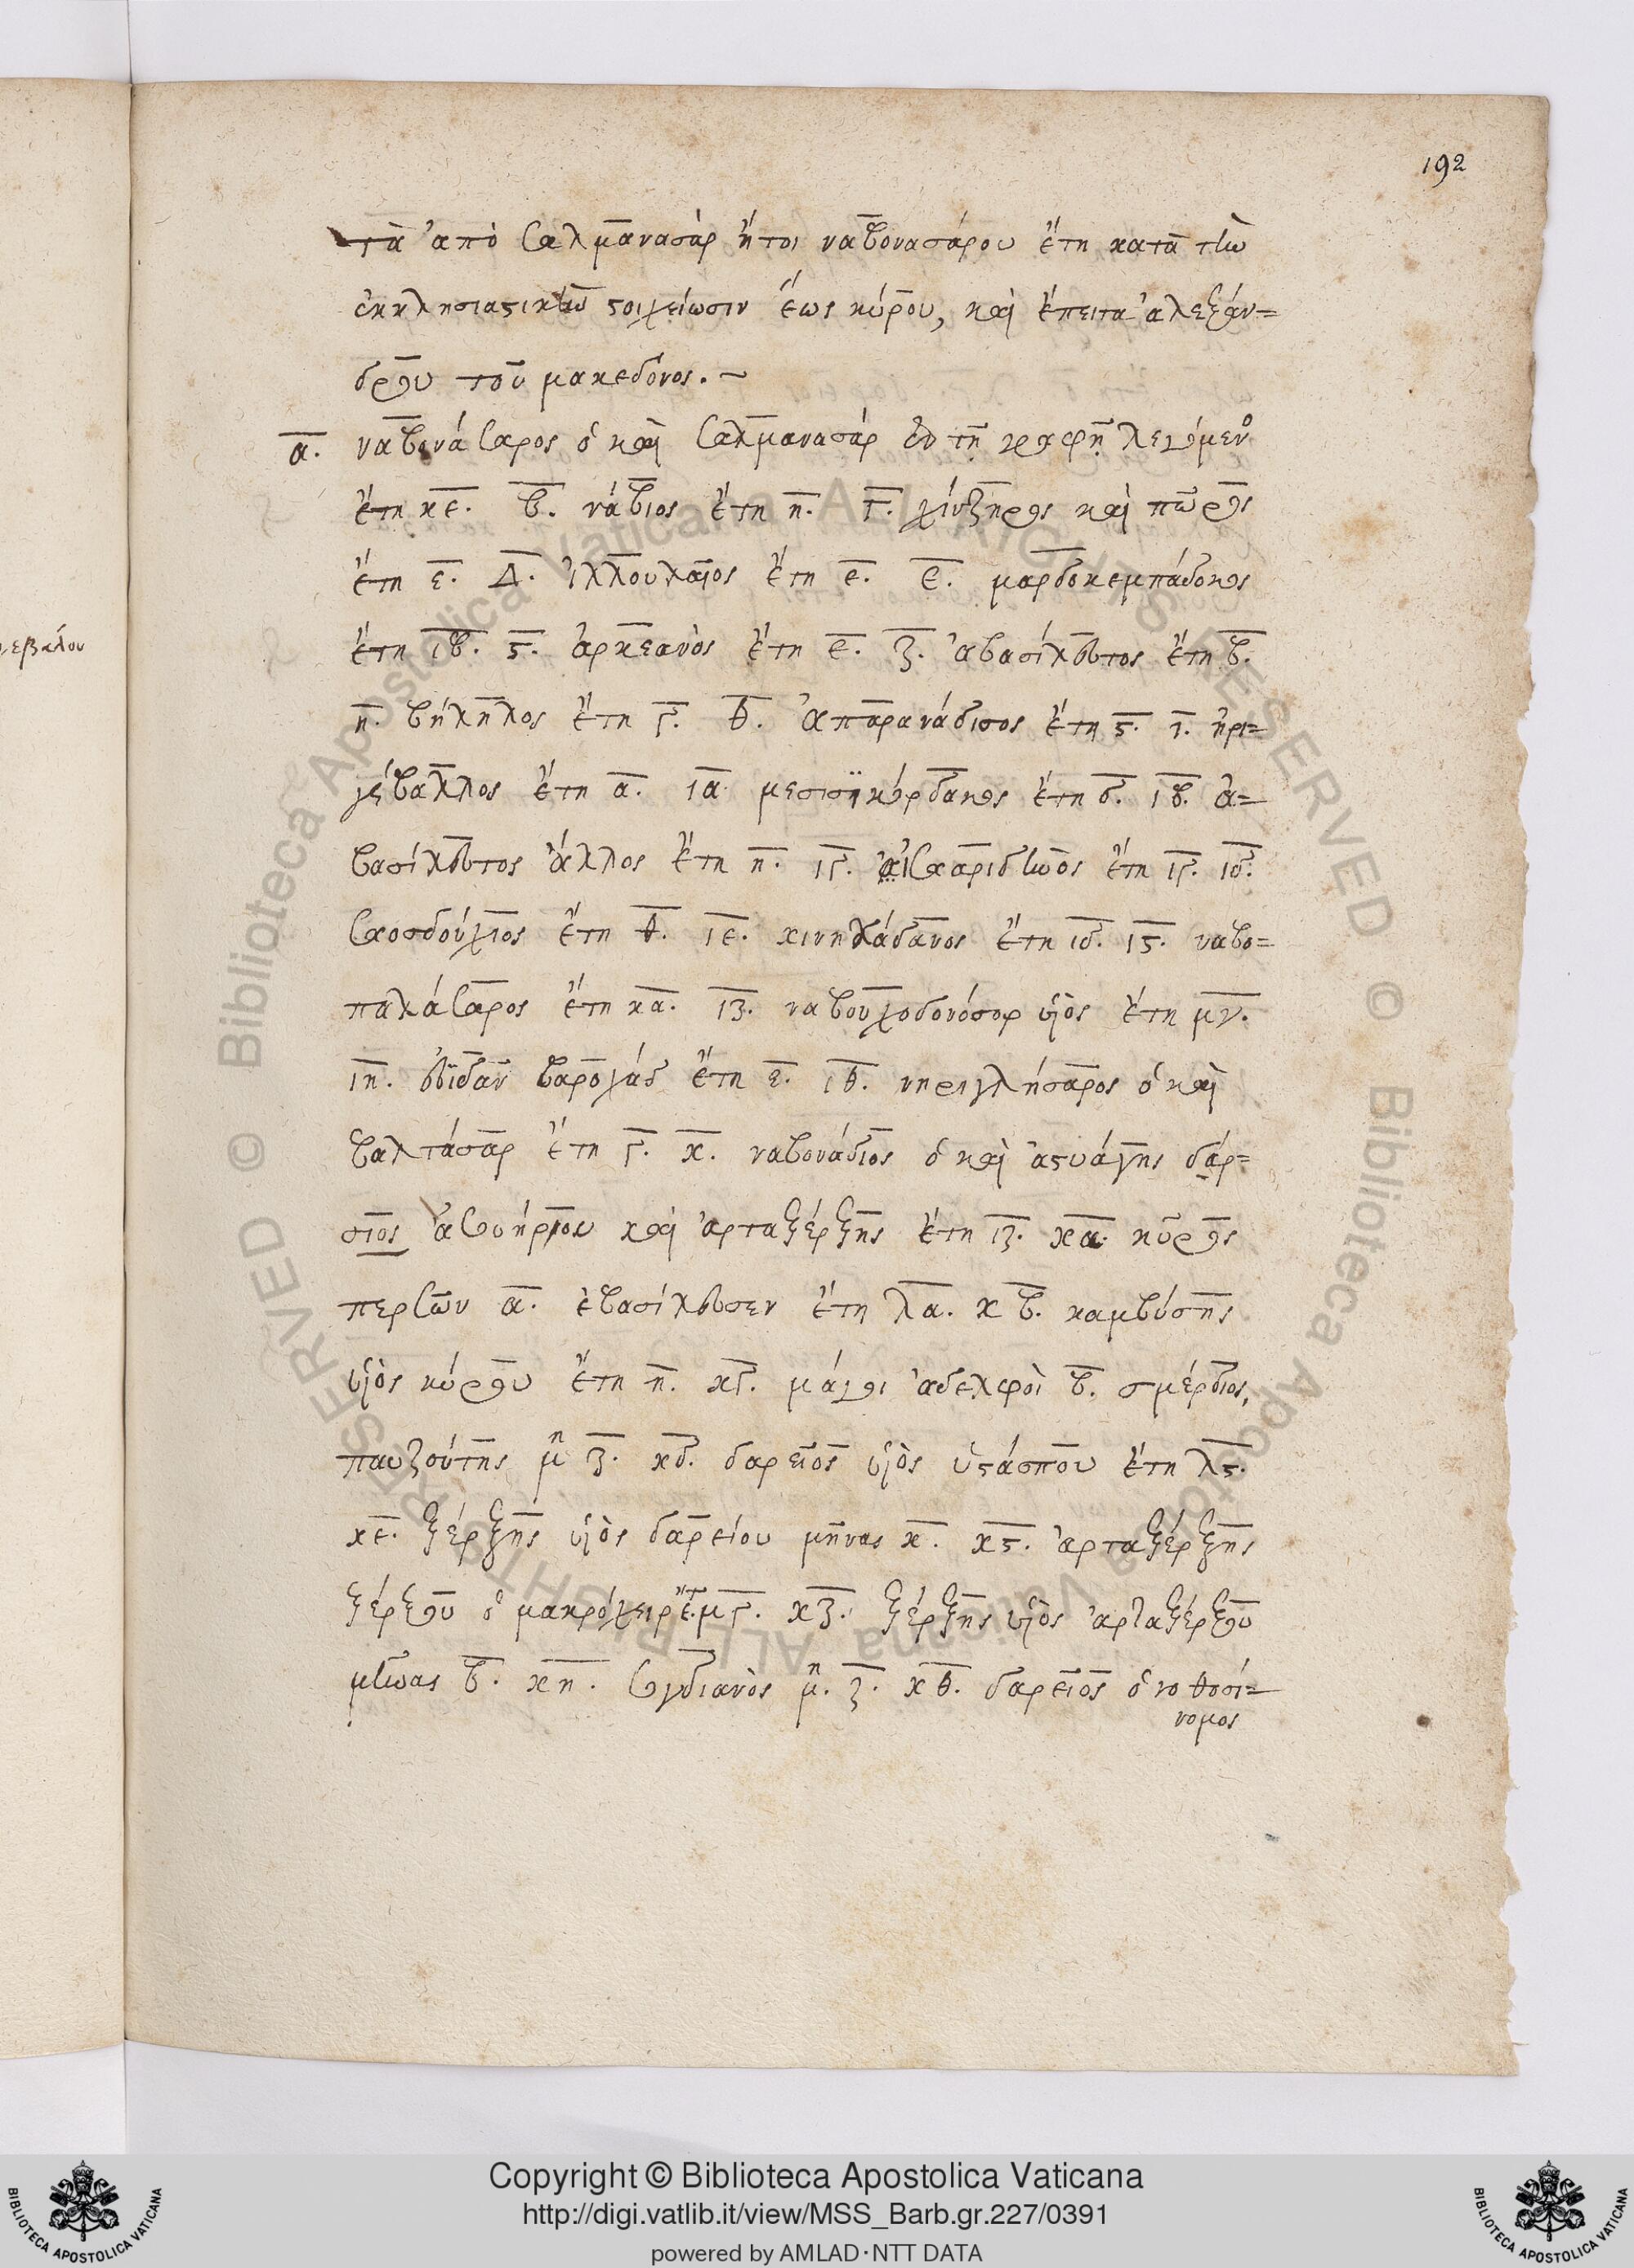 192
τὰ ἀπὸ Σαλμανασὰρ ἤτοι ναβονασάρου ἔτη κατὰ τὴν
ἐκκλησιαστικὴν στοιχείωσιν ἕως κύρου, καὶ ἔπειτα ἀλεξάν=
δρου τοῦ μακεδόνος. ~
α. ναβονάσαρος ὁ καὶ Σαλμανασάρ ἐν τῇ γραφῇ λεγόμενο
ἔτη κε. β. νάβιος ἔτη η. γ. χίνζηρος καὶ πῶρος
ἔτη ε. Δ. ἰλλουλαῖος ἔτη ε. ε. μαρδοκεμπάδοκος
ἔτη ιβ. ϛ. ἀρκεανὸς ἔτη ε. ζ. ἀβασίλευτος ἔτη β.
η. βήληλος ἔτη γ. θ. ἀπαρανάδισος ἔτη ϛ. ι. ἠρι=
γέβαλλος ἔτη α. ια μεσισηκόρδακος ἔτη δ. ιβ. ἀ=
βασίλευτος ἄλλος ἔτη η. ιγ. ἰσααριδινὸς ἔτη ιγ. ιδ.
Σαοσδούχιος ἔτη θ. ιε. κινηλάδανος ἔτη ιδ. ιϛ. ναβο=
παλάσαρος ἔτη κα. ιζ. ναβουχοδονόσορ υἱὸς ἔτη μγ.
ιη. εὐϊδὰν βαροχάδ ἔτη ε. ιθ. νηριγλήσαρος ὁ καὶ
βαλτάσαρ ἔτη γ. κ. ναβονάδιος ὁ καὶ ἀστυάγης δάρ=
σιος ἀσυήρου καὶ ἀρταξέρξης ἔτη ιζ. κα. κῦρος
περσῶν α. ἐβασίλευσεν ἔτη λα. κβ. καμβύσης
υἱὸς κύρου ἔτη η. κγ. μάγοι ἀδελφοὶ β. σμέρδιος,
παυζούτης μη ζ. κδ. δαρεῖος υἱὸς ὑστάσπου ἔτη λϛ.
κε. ξέρξης υἱὸς δαρείου μῆνας κ. κϛ. ἀρταξέρξης
ξέρξου ὁ μακρόχειρ ἔτ. μγ. κζ. ξέρξης υἱὸς ἀρταξέρξου
μῆνας β. κη. Σογδιανὸς μη. ζ. κθ. δαρεῖος ὁ νοθοσί=
νομος
Copyright © Biblioteca Apostolica Vaticana
http://digi.vatlib.it/view/MSS_Barb.gr.227/0391
powered by AMLAD·NTT DATA
BIBLIOTECA APOSTOLICA VATICANA
BIBLIOTECA APOSTOLICA VATICANA